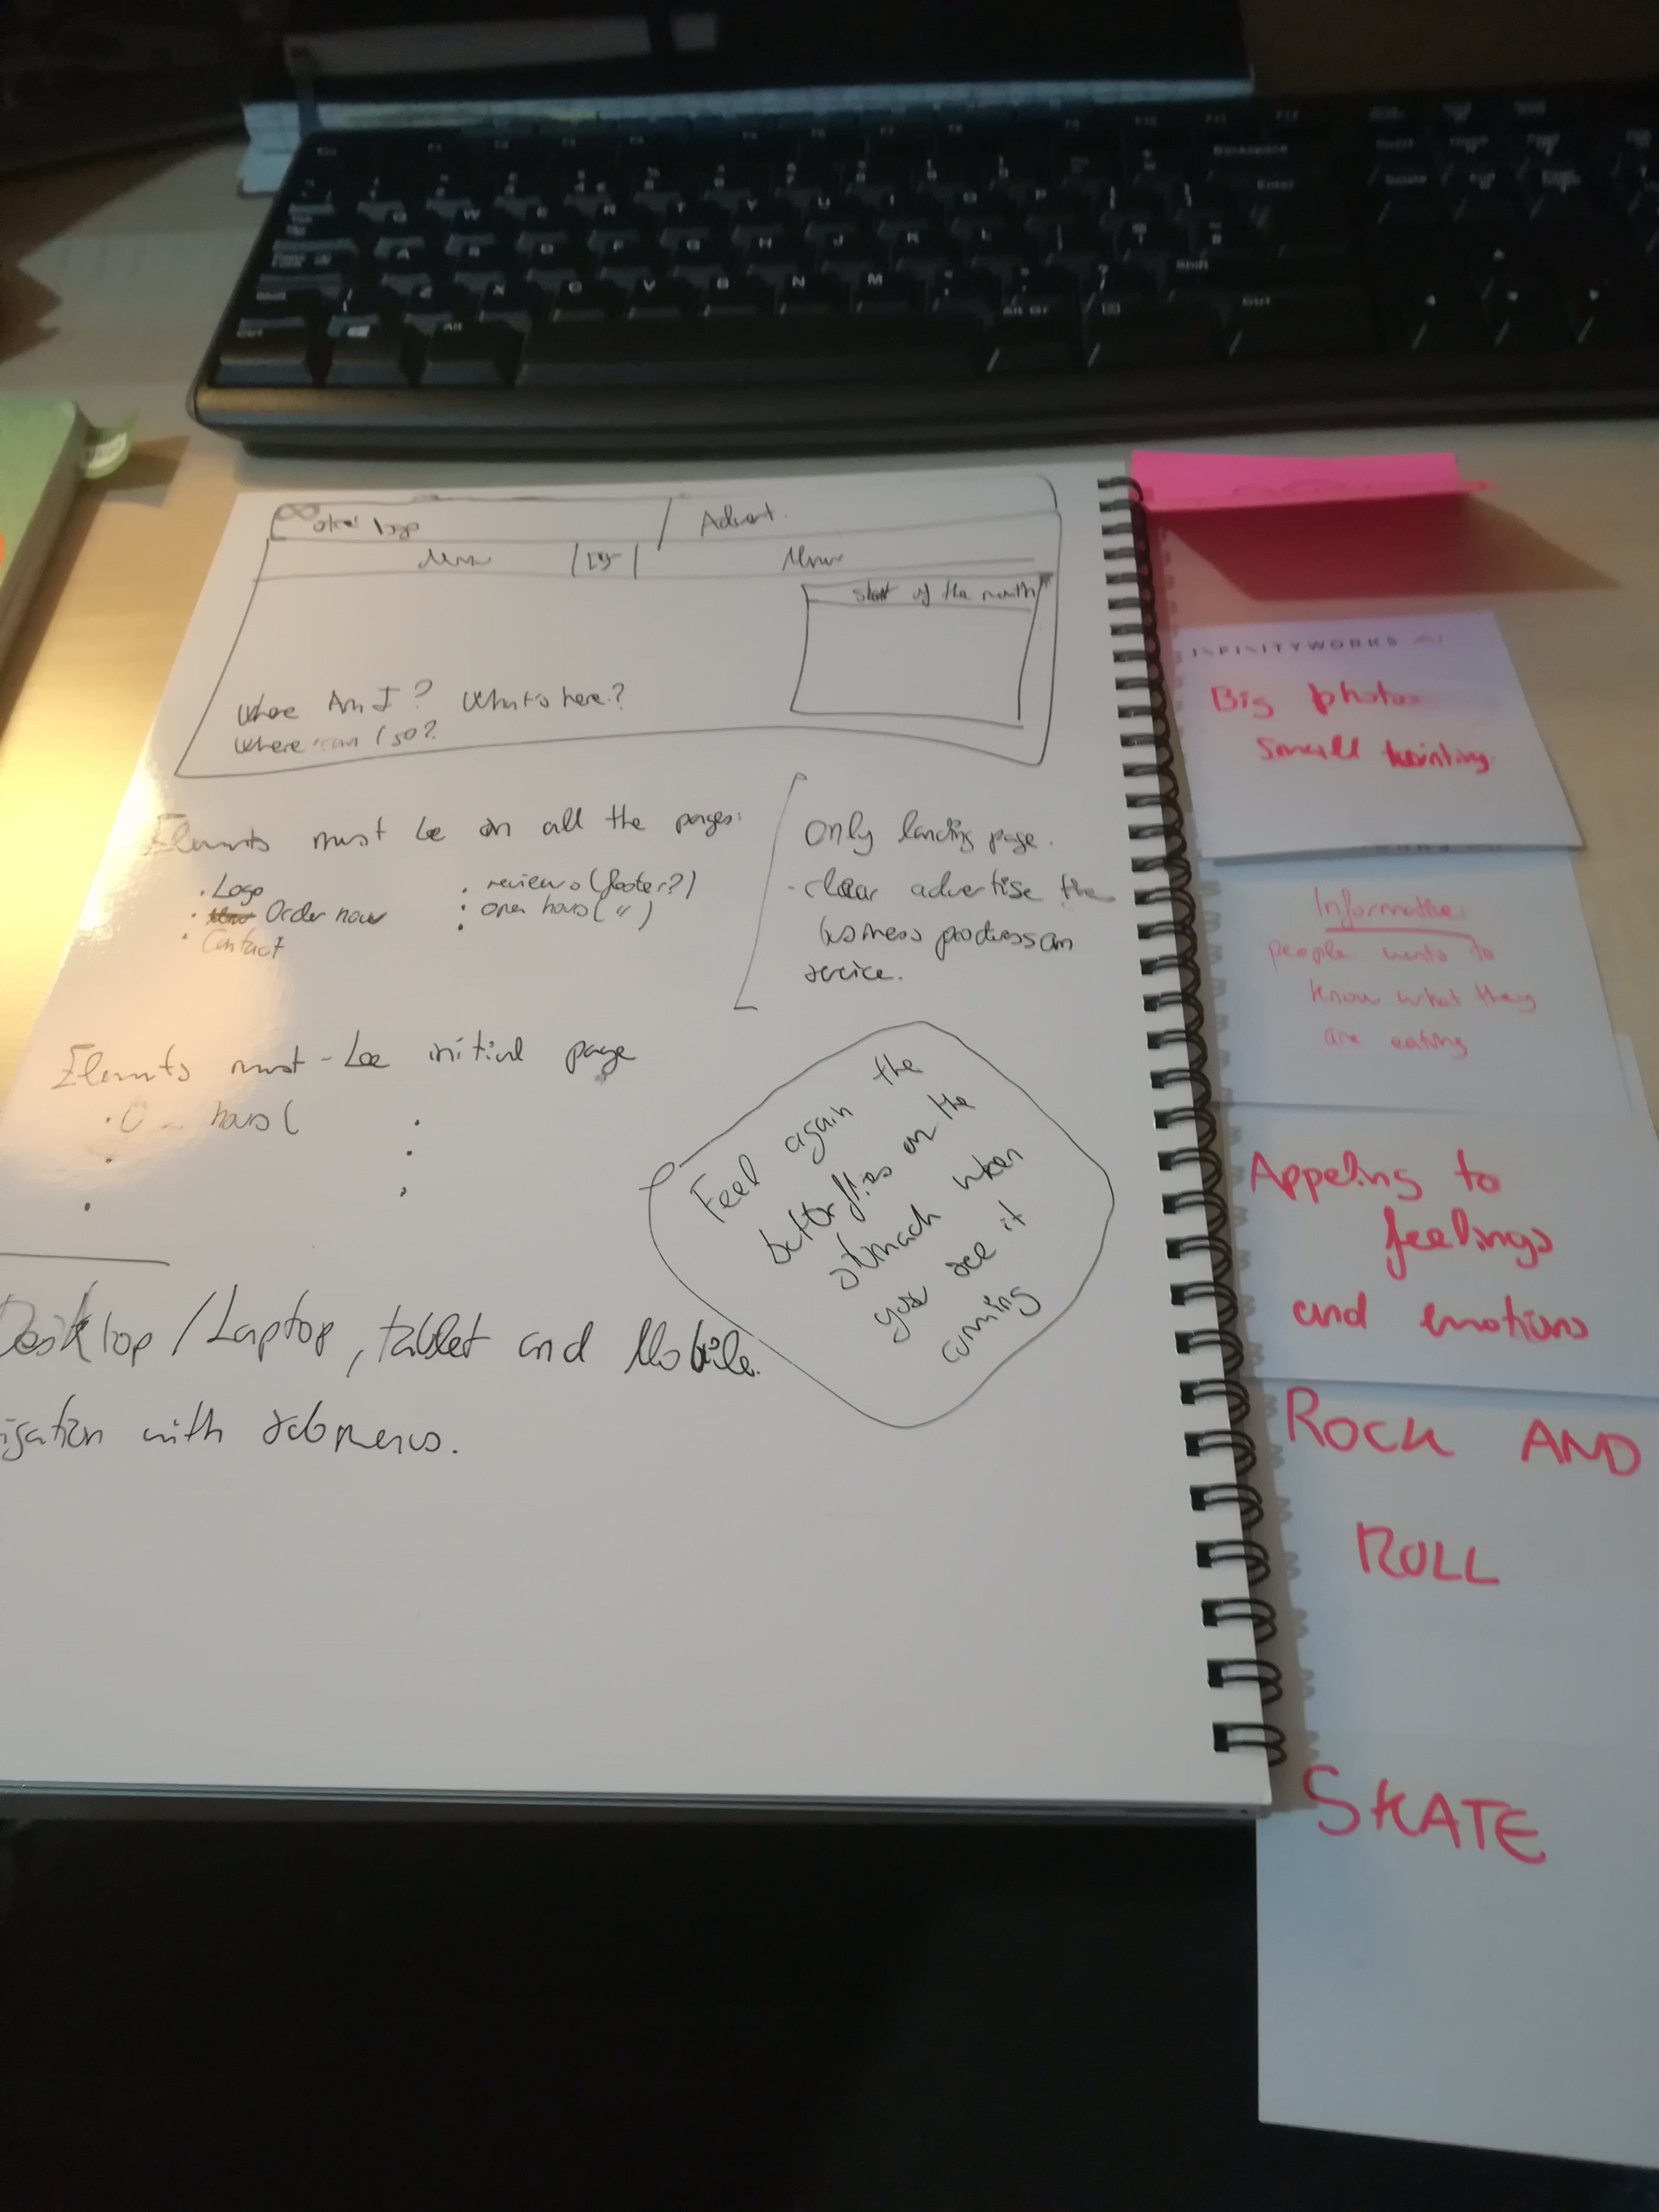 logo
Advert.
Menu
Menu
of the month
Where Am I? What's here?
Where can I go?
Elements must be on all the pages:
. Logo
. Order now
. Contact
. reviews (footer?)
. open hours ( " )
Only landing page.
- clear advertise the
business products an
service.
Elements must - be initial page
hours (
Feel again the
butterflies on the
stomach when
you see it
coming
Desktop / Laptop, tablet and Mobile.
igation with submenus.
INFINITYWORKS
Big photos
Small
Informative:
people wants to
know what they
are eating
Appeling to
feelings
and emotions
ROCK AND
ROLL
SKATE